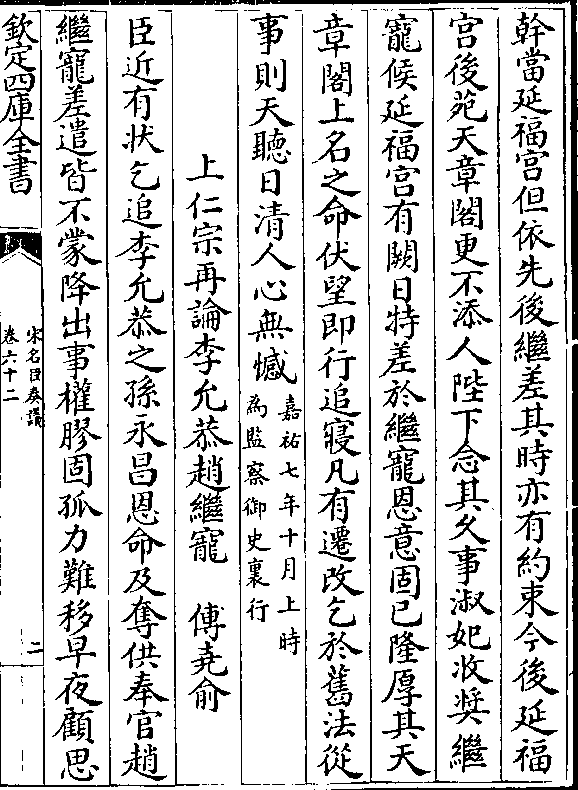 幹當延福宫但依先後繼差其時亦有約束今後延福
宫後苑天章閣更不添人陛下念其久事淑妃收奬繼
寵候延福宫有闕日特差於繼寵恩意固已隆厚其天
章閣上名之命伏望即行追寢凡有遷改乞於舊法從
事則天聽日清人心無憾
嘉祐七年十月上時
為監察御史裏行
上仁宗再論李允恭趙繼寵　傅堯俞
臣近有狀乞追李允恭之孫永昌恩命及奪供奉官趙
繼寵差遣皆不蒙降出事權膠固孤力難移早夜顧思
欽定四庫全書
宋名臣奏議
卷六十二
二